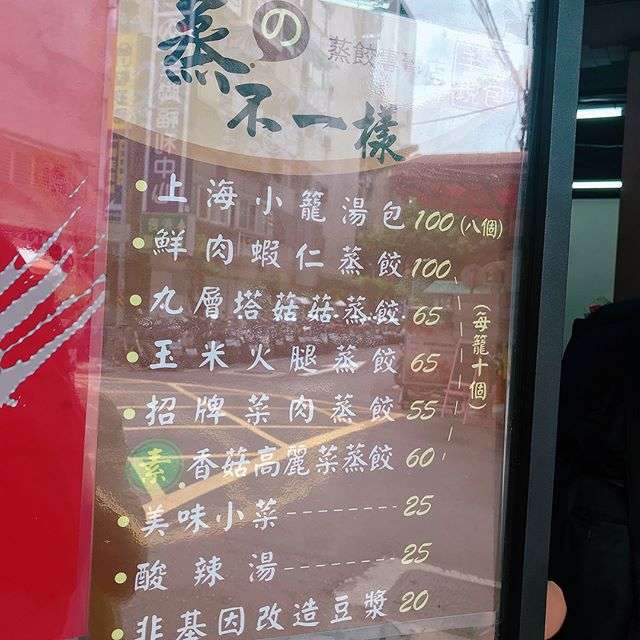 蒸の
不一樣
上海小籠湯包 100 (八個)
鮮肉蝦仁蒸餃 100
九層塔菇菇蒸餃 65
玉米火腿蒸餃 65
招牌菜肉蒸餃 55
素 香菇高麗菜蒸餃 60
(每籠十個)
美味小菜 25
酸辣湯 25
非基因改造豆漿 20